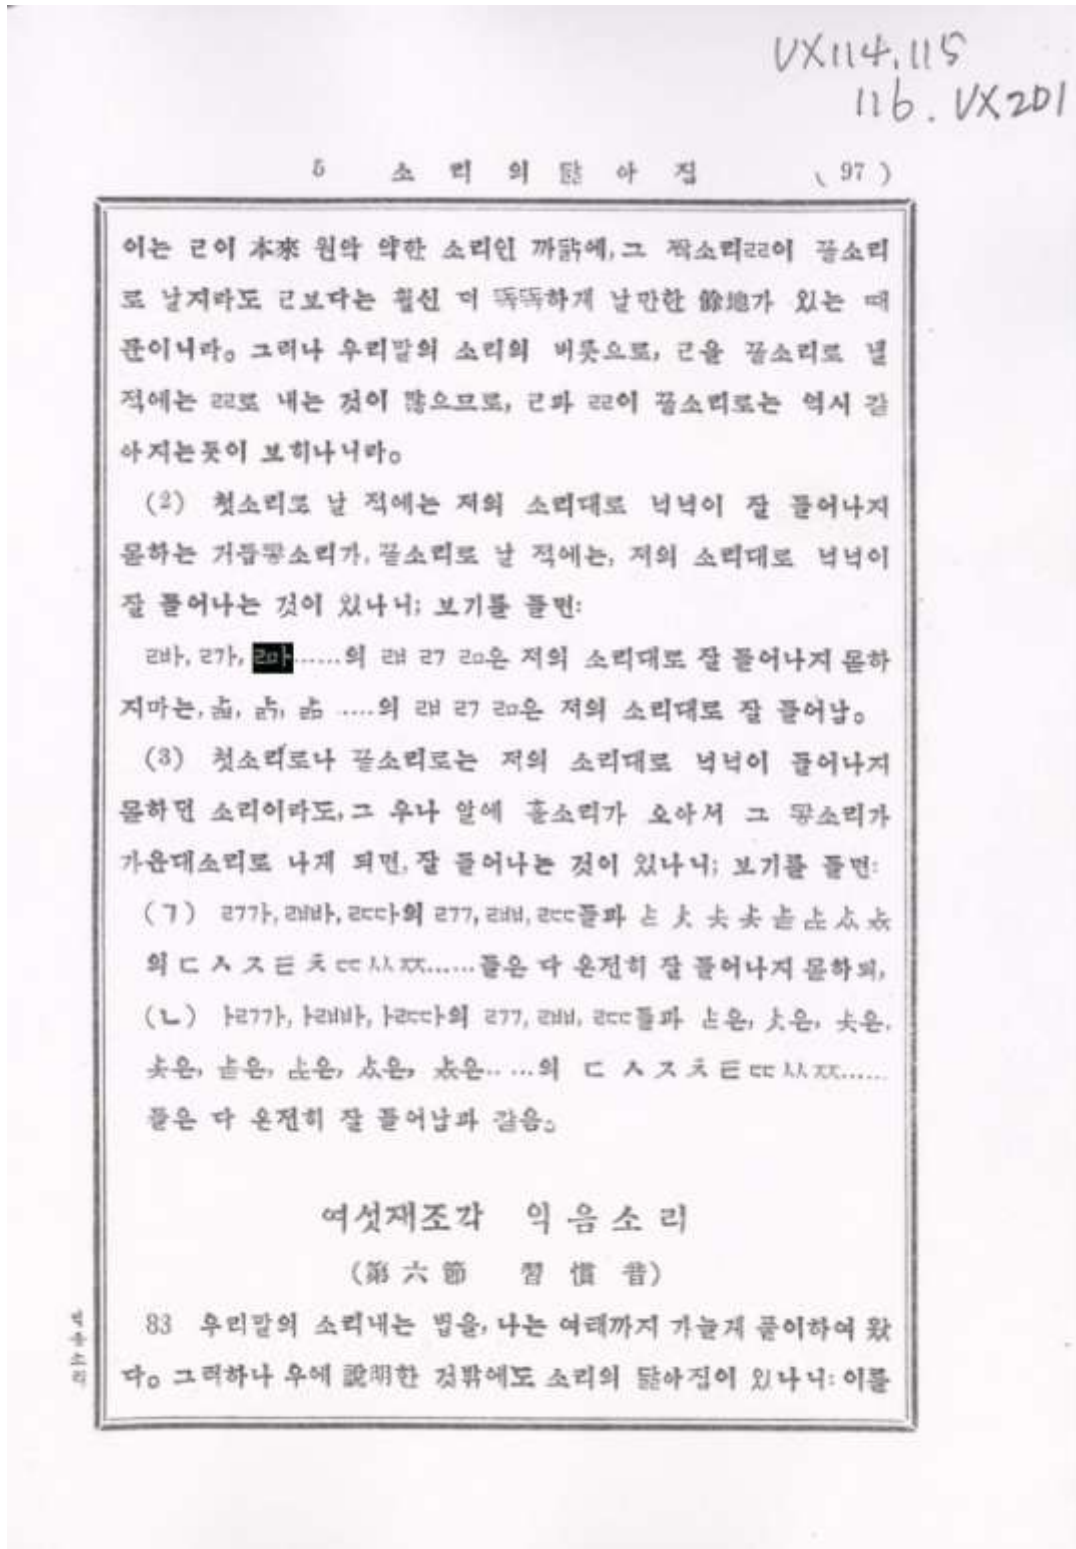 UX114.115
116. UX201
5 소리의 닮아짐 ( 97 )
이는 ㄹ이 本來 원악 약한 소리인 까닭에, 그 짝소리ㄹㄹ이 끝소리
로 날지라도 ㄹ보다는 훨신 더 똑똑하게 날만한 餘地가 있는 때
문이니라。 그러나 우리말의 소리의 버릇으로, ㄹ을 끝소리로 낼
적에는 ㄹㄹ로 내는 것이 많으므로, ㄹ과 ㄹㄹ이 끝소리로는 역시 같
아지는듯이 보히나니라。
(2) 첫소리로 날 적에는 저의 소리대로 넉넉이 잘 들어나지
몯하는 거듭닿소리가, 끝소리로 날 적에는, 저의 소리대로 넉넉이
잘 들어나는 것이 있나니; 보기를 들면:
ㄹ바, ㄹ가, ㄹ마……의 ㄼ ㄺ ㄻ은 저의 소리대로 잘 들어나지 몯하
지마는, ㅏㄼ, ㅏㄺ, ㅏㄻ ….의 ㄼ ㄺ ㄻ은 저의 소리대로 잘 들어남。
(3) 첫소리로나 끝소리로는 저의 소리대로 넉넉이 들어나지
몯하던 소리이라도, 그 우나 알에 홀소리가 오아서 그 닿소리가
가운대소리로 나게 되면, 잘 들어나는 것이 있나니; 보기를 들면:
(ㄱ) ㄹㄱ가, ㄹㅂ바, ㄹㄷ다의 ㄹㄱㄱ, ㄹㅂㅂ, ㄹㄷㄷ들과 ㅏㄷ ㅏㅅ ㅏㅈ ㅏㅊ ㅏㅌ ㅏㄸ ㅏㅆ ㅏㅉ
의 ㄷ ㅅ ㅈ ㅌ ㅊ ㄸ ㅆ ㅉ……들은 다 온전히 잘 들어나지 몯하되,
(ㄴ) ㅏㄹㄱ가, ㅏㄹㅂ바, ㅏㄹㄷ다의 ㄹㄱㄱ, ㄹㅂㅂ, ㄹㄷㄷ들과 ㅏㄷ은, ㅏㅅ은, ㅏㅈ은,
ㅏㅊ은, ㅏㅌ은, ㅏㄸ은, ㅏㅆ은, ㅏㅉ은……의 ㄷ ㅅ ㅈ ㅊ ㅌ ㄸ ㅆ ㅉ……
들은 다 온전히 잘 들어남과 같음。
여섯재조각 익음소리
(第六節 習慣音)
83 우리말의 소리내는 법을, 나는 여태까지 가늘게 풀이하여 왔
다。 그러하나 우에 說明한 것밖에도 소리의 닮아짐이 있나니: 이를
익음소리